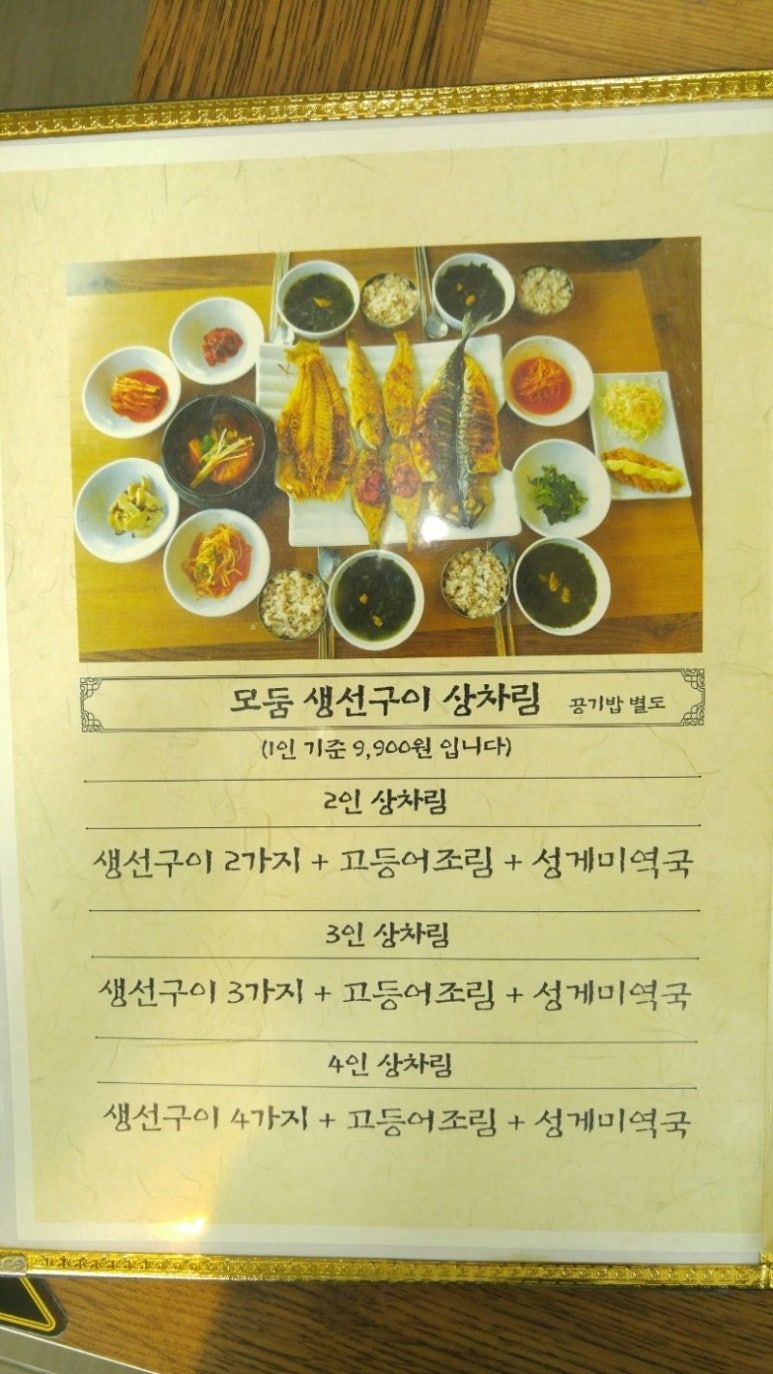 모둠 생선구이 상차림 공기밥 별도
(1인 기준 9,900원 입니다)
2인 상차림
생선구이 2가지 + 고등어조림 + 성게미역국
3인 상차림
생선구이 3가지 + 고등어조림 + 성게미역국
4인 상차림
생선구이 4가지 + 고등어조림 + 성게미역국